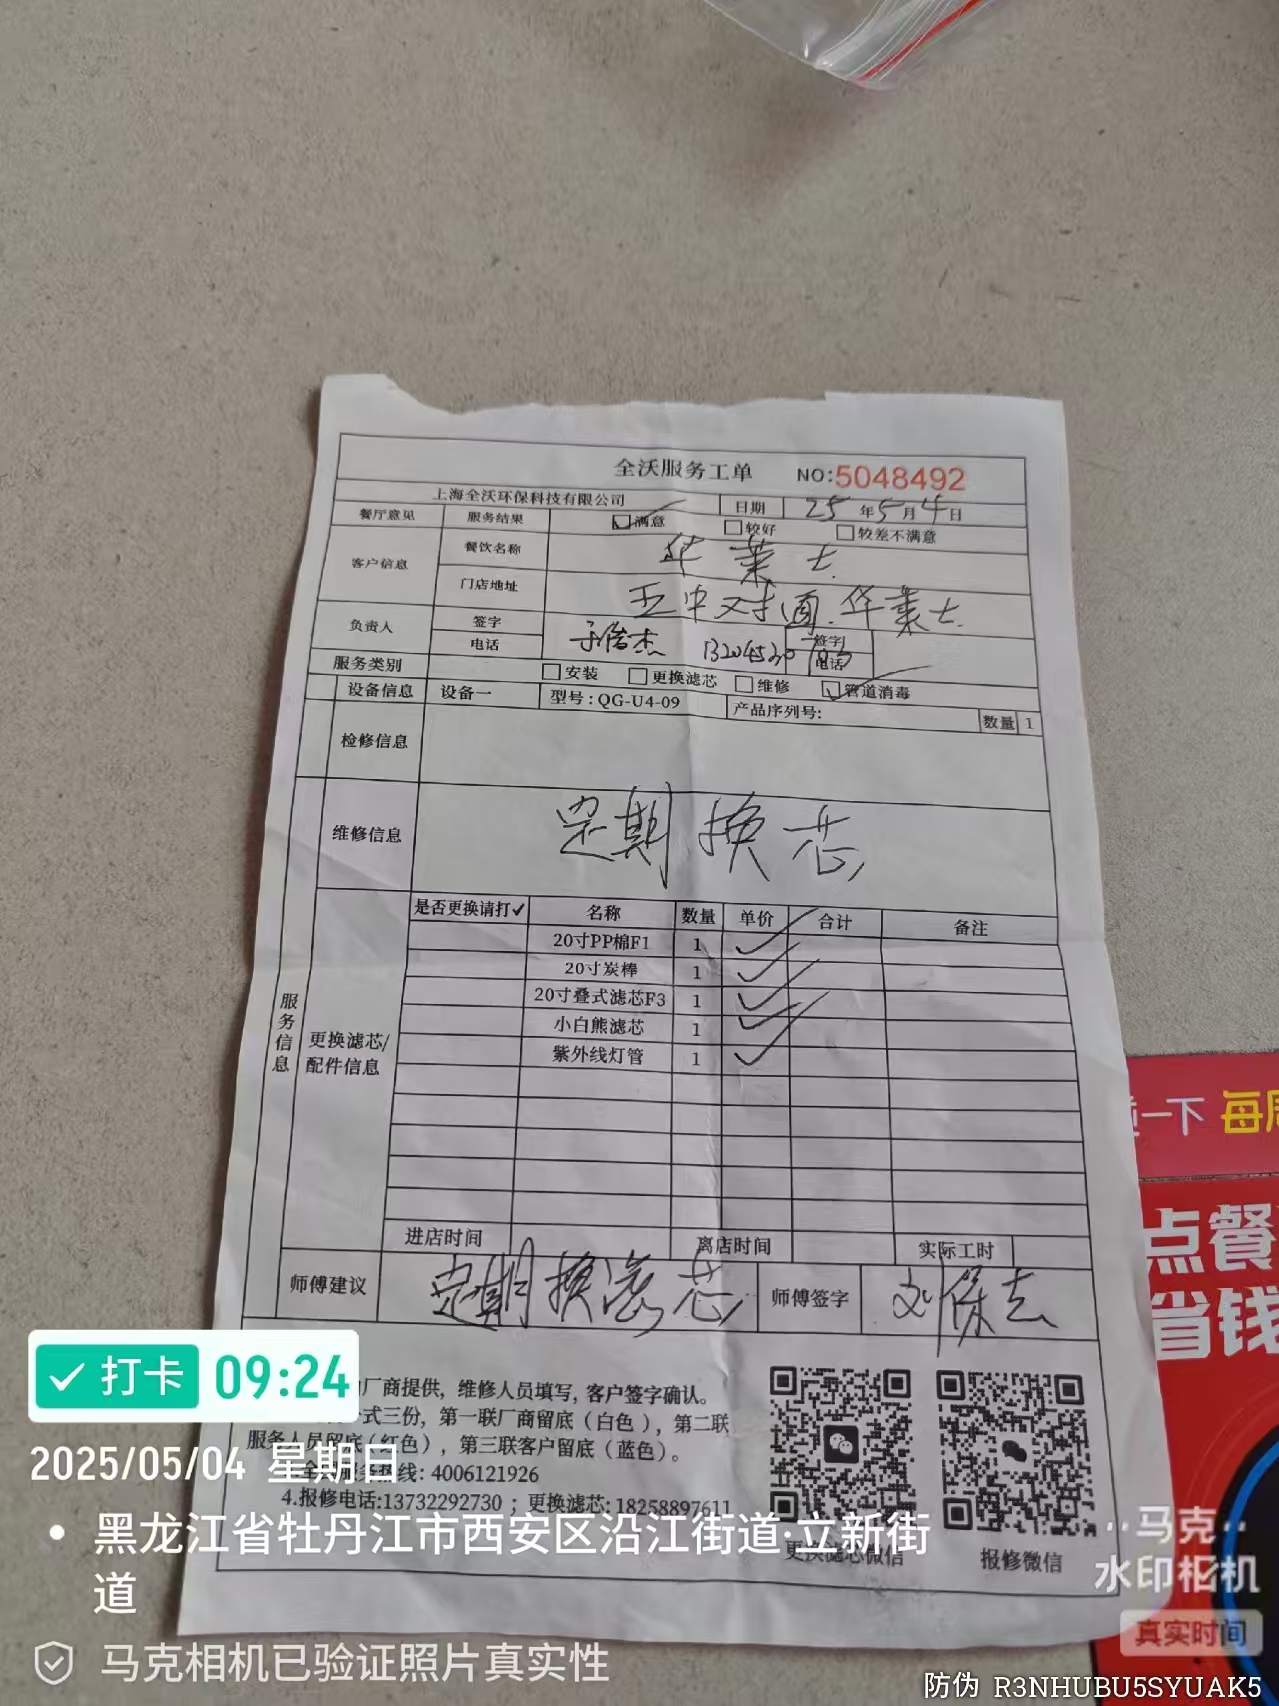 全沃服务工单 NO:5048492
上海全沃环保科技有限公司 日期 25年5月4日
餐厅意见 服务结果 满意 较好 较差不满意
客户信息 餐饮名称 华莱士
门店地址 五中对面.华莱士.
负责人 签字 签字
电话 电话
服务类别 安装 更换滤芯 维修 管道消毒
设备信息 设备一 型号:QG-U4-09 产品序列号: 数量 1
检修信息
维修信息 定期换芯
服务信息
更换滤芯/配件信息
是否更换请打✓ 名称 数量 单价 合计 备注
20寸PP棉F1 1 ✓
20寸炭棒 1 ✓
20寸叠式滤芯F3 1 ✓
小白熊滤芯 1 ✓
紫外线灯管 1 ✓
进店时间 离店时间 实际工时
师傅建议 定期换滤芯 师傅签字
厂商提供，维修人员填写，客户签字确认。
式三份，第一联厂商留底（白色），第二联
服务人员留底（红色），第三联客户留底（蓝色）。
4006121926
4.报修电话:13732292730；更换滤芯:18258897611
更换滤芯微信 报修微信
一下 每周
点餐
省钱
打卡 09:24
2025/05/04 星期日
黑龙江省牡丹江市西安区沿江街道·立新街
道
马克相机已验证照片真实性
马克
水印相机
真实时间
防伪 R3NHUBU5SYUAK5